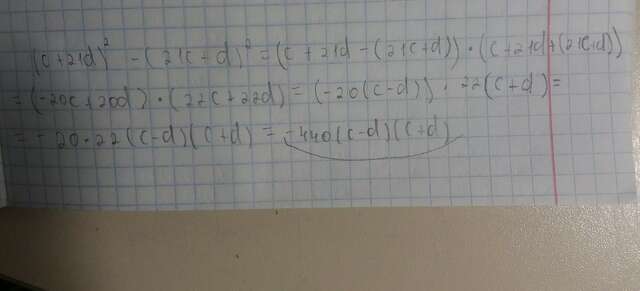 (c+21d)² - (21c+d)² = (c+21d-(21c+d))·(c+21d+(21c+d))
= (-20c+20d)·(22c+22d) = (-20(c-d))·22(c+d) =
= -20·22(c-d)(c+d) = -440(c-d)(c+d)